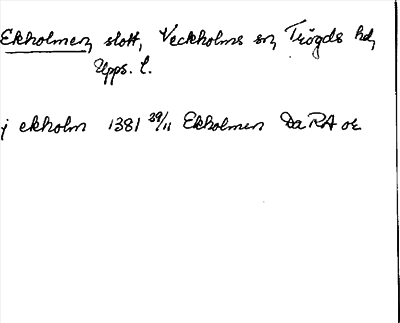 Ekholmen, slott, Veckholms sn, Trögds hd,
Upps. l.
j ekholm 1381 29/11 Ekholmen Da RA or